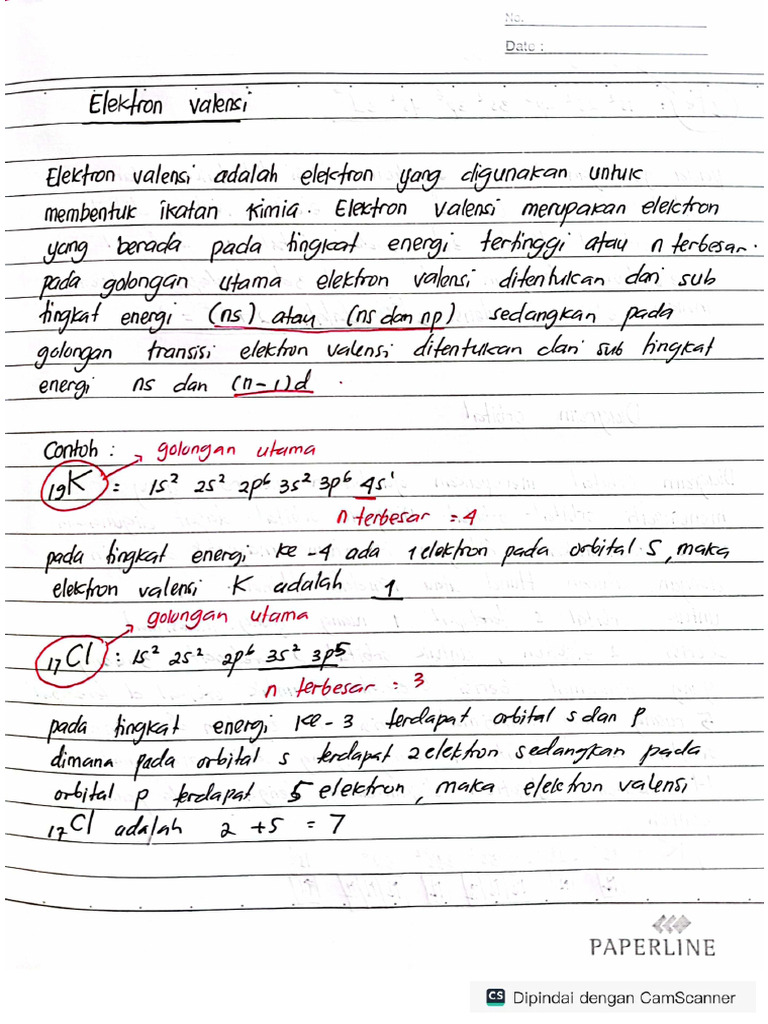 No.
Date :
Elektron valensi
Elektron valensi adalah elektron yang digunakan untuk
membentuk ikatan kimia. Elektron valensi merupakan elektron
yang berada pada tingkat energi tertinggi atau n terbesar.
pada golongan utama elektron valensi ditentukan dari sub
tingkat energi (ns) atau (ns dan np) sedangkan pada
golongan transisi elektron valensi ditentukan dari sub tingkat
energi ns dan (n-1)d.
Contoh : golongan utama
₁₉K = 1s² 2s² 2p⁶ 3s² 3p⁶ 4s¹
n terbesar = 4
pada tingkat energi ke -4 ada 1 elektron pada orbital s, maka
elektron valensi K adalah 1
golongan utama
₁₇Cl : 1s² 2s² 2p⁶ 3s² 3p⁵
n terbesar = 3
pada tingkat energi ke-3 terdapat orbital s dan p
dimana pada orbital s terdapat 2 elektron sedangkan pada
orbital p terdapat 5 elektron, maka elektron valensi
₁₇Cl adalah 2 +5 = 7
PAPERLINE
CS Dipindai dengan CamScanner